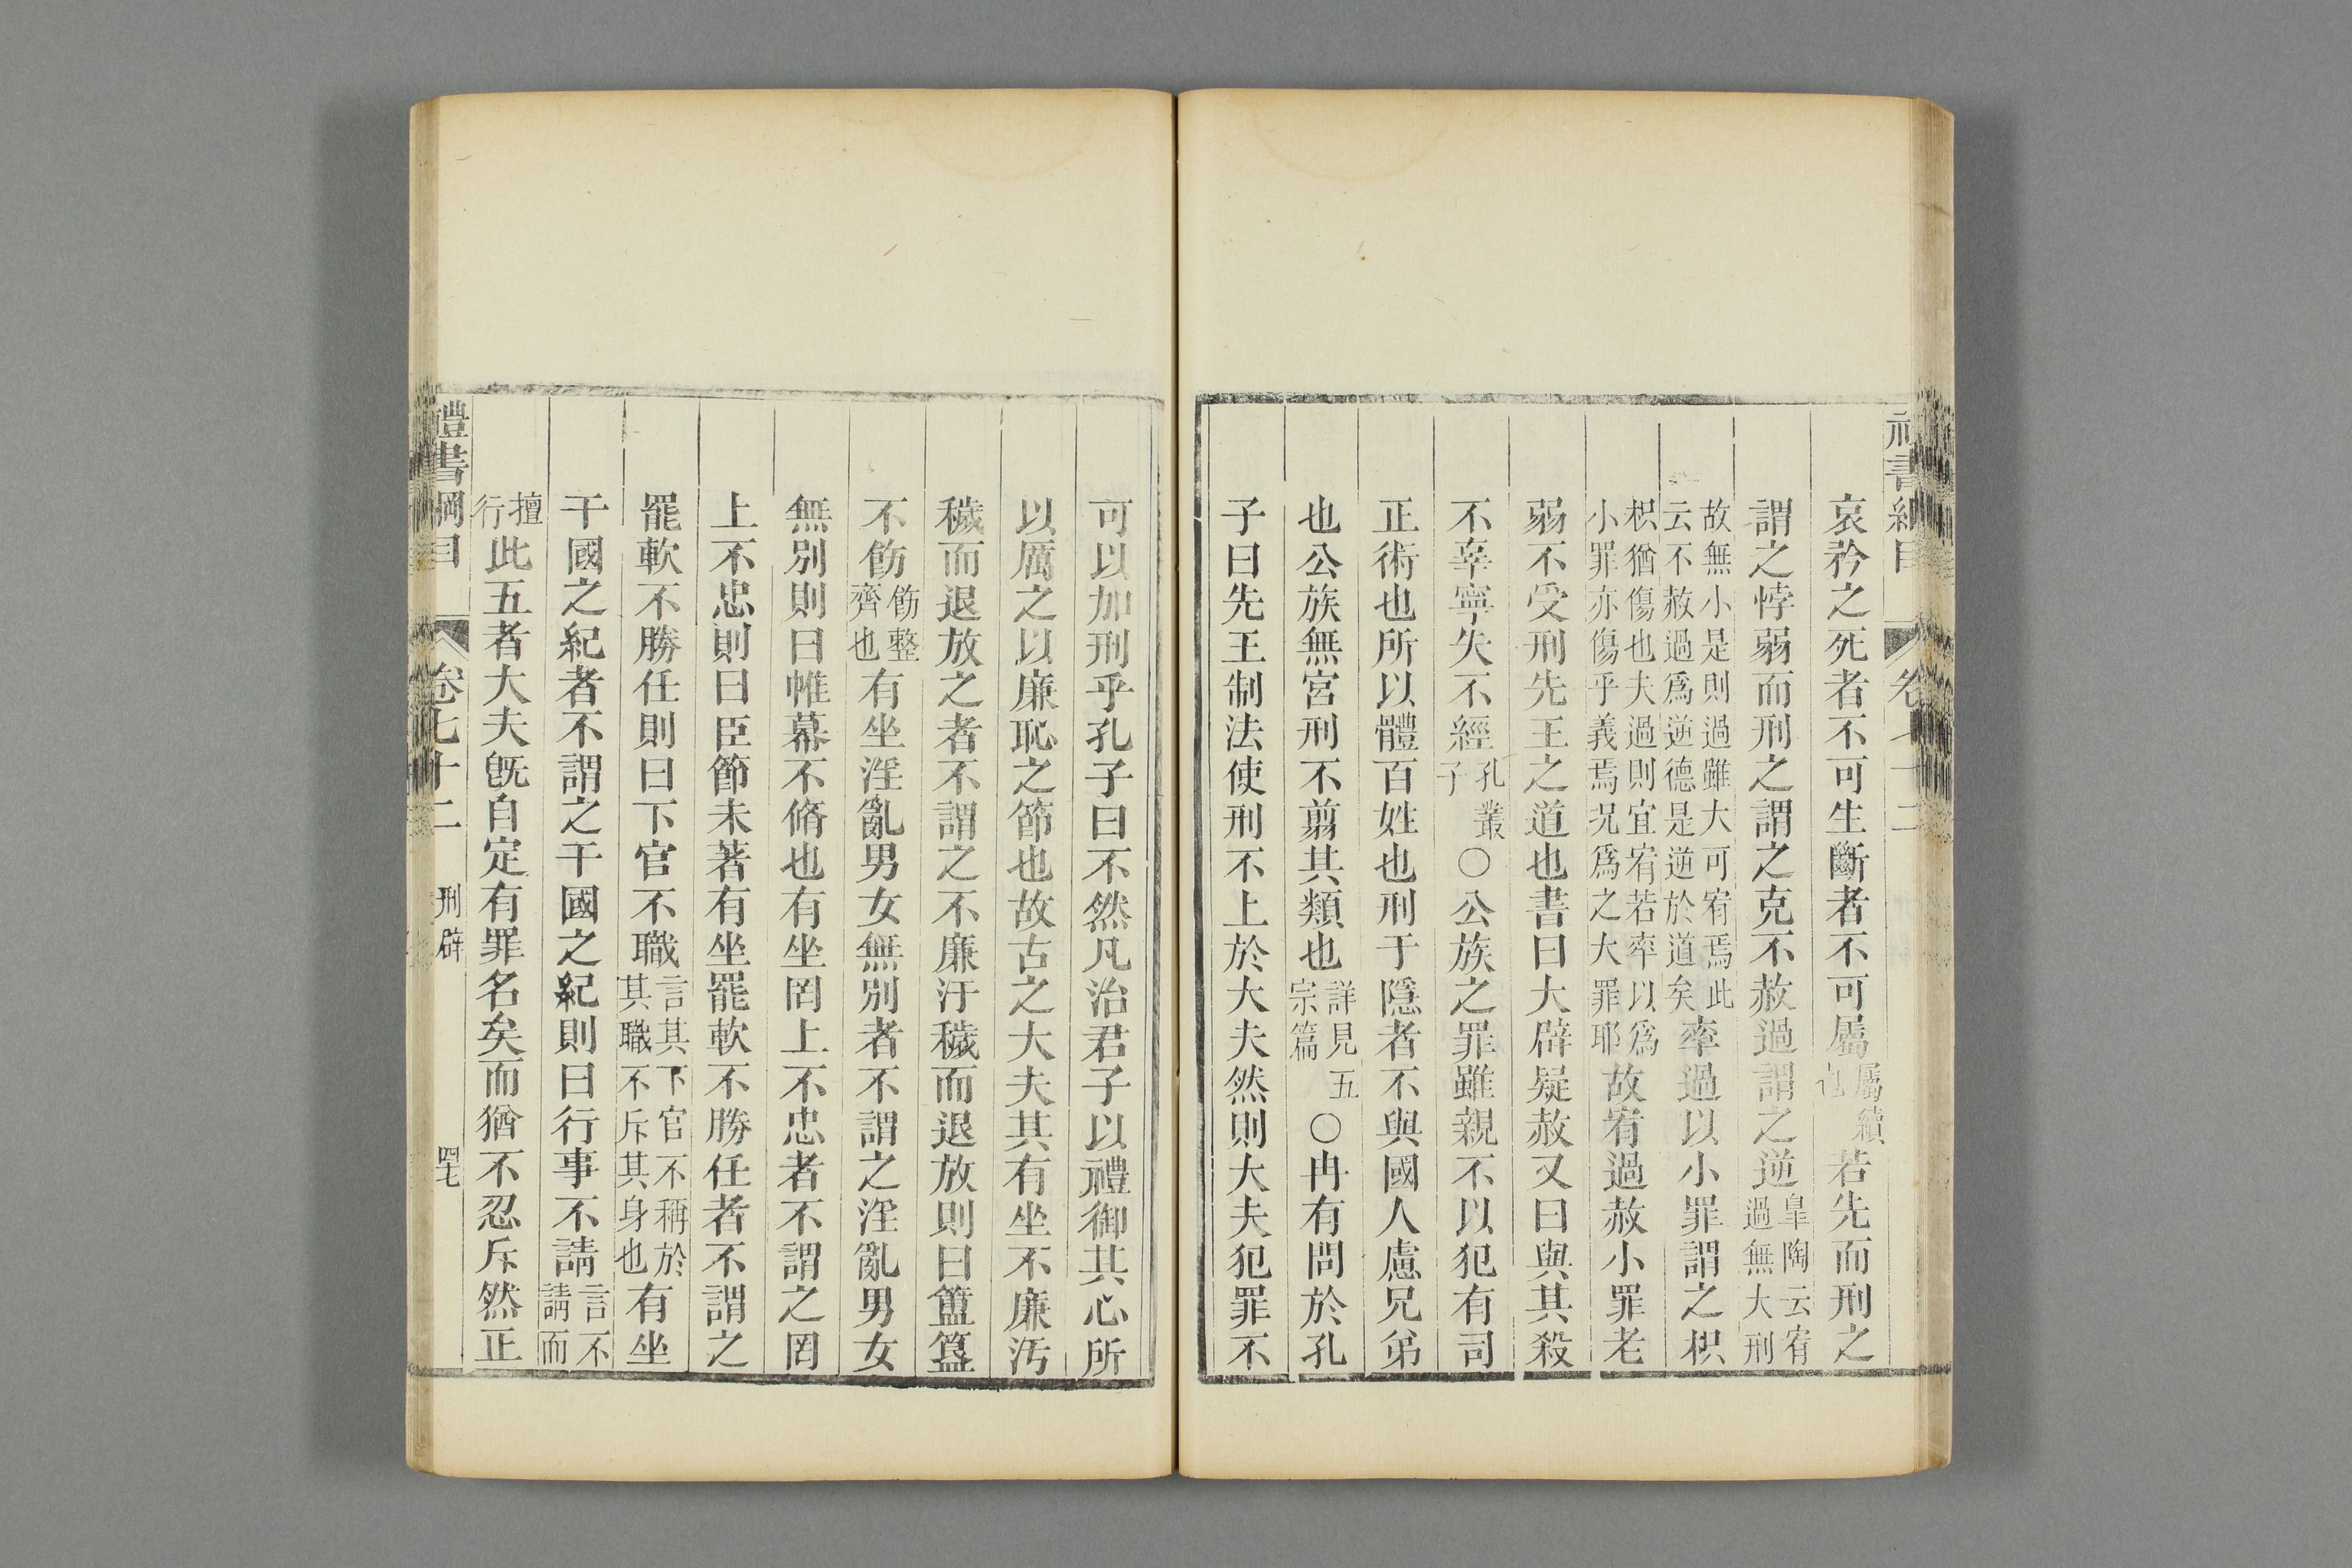 哀矜之死者不可生斷者不可屬屬續也若先而刑之
謂之悖弱而刑之謂之克不赦過謂之逆皐陶云宥過無大刑
故無小是則過雖大可宥焉此云不赦過爲逆德是逆於道矣率過以小罪謂之枳
枳猶傷也夫過則宜宥若率以爲小罪亦傷乎義焉況爲之大罪耶故宥過赦小罪老
弱不受刑先王之道也書曰大辟疑赦又曰與其殺
不辜寧失不經孔叢子○公族之罪雖親不以犯有司
正術也所以體百姓也刑于隱者不與國人慮兄弟
也公族無宮刑不翦其類也詳見五宗篇○冉有問於孔
子曰先王制法使刑不上於大夫然則大夫犯罪不
可以加刑乎孔子曰不然凡治君子以禮御其心所
以厲之以廉恥之節也故古之大夫其有坐不廉汚
穢而退放之者不謂之不廉汙穢而退放則曰簠簋
不飭飭整齊也有坐淫亂男女無別者不謂之淫亂男女
無別則曰帷幕不脩也有坐罔上不忠者不謂之罔
上不忠則曰臣節未著有坐罷軟不勝任者不謂之
罷軟不勝任則曰下官不職言其下官不稱於其職不斥其身也有坐
干國之紀者不謂之干國之紀則曰行事不請言不請而
擅行此五者大夫旣自定有罪名矣而猶不忍斥然正
禮書綱目 卷七十二 刑辟 四七